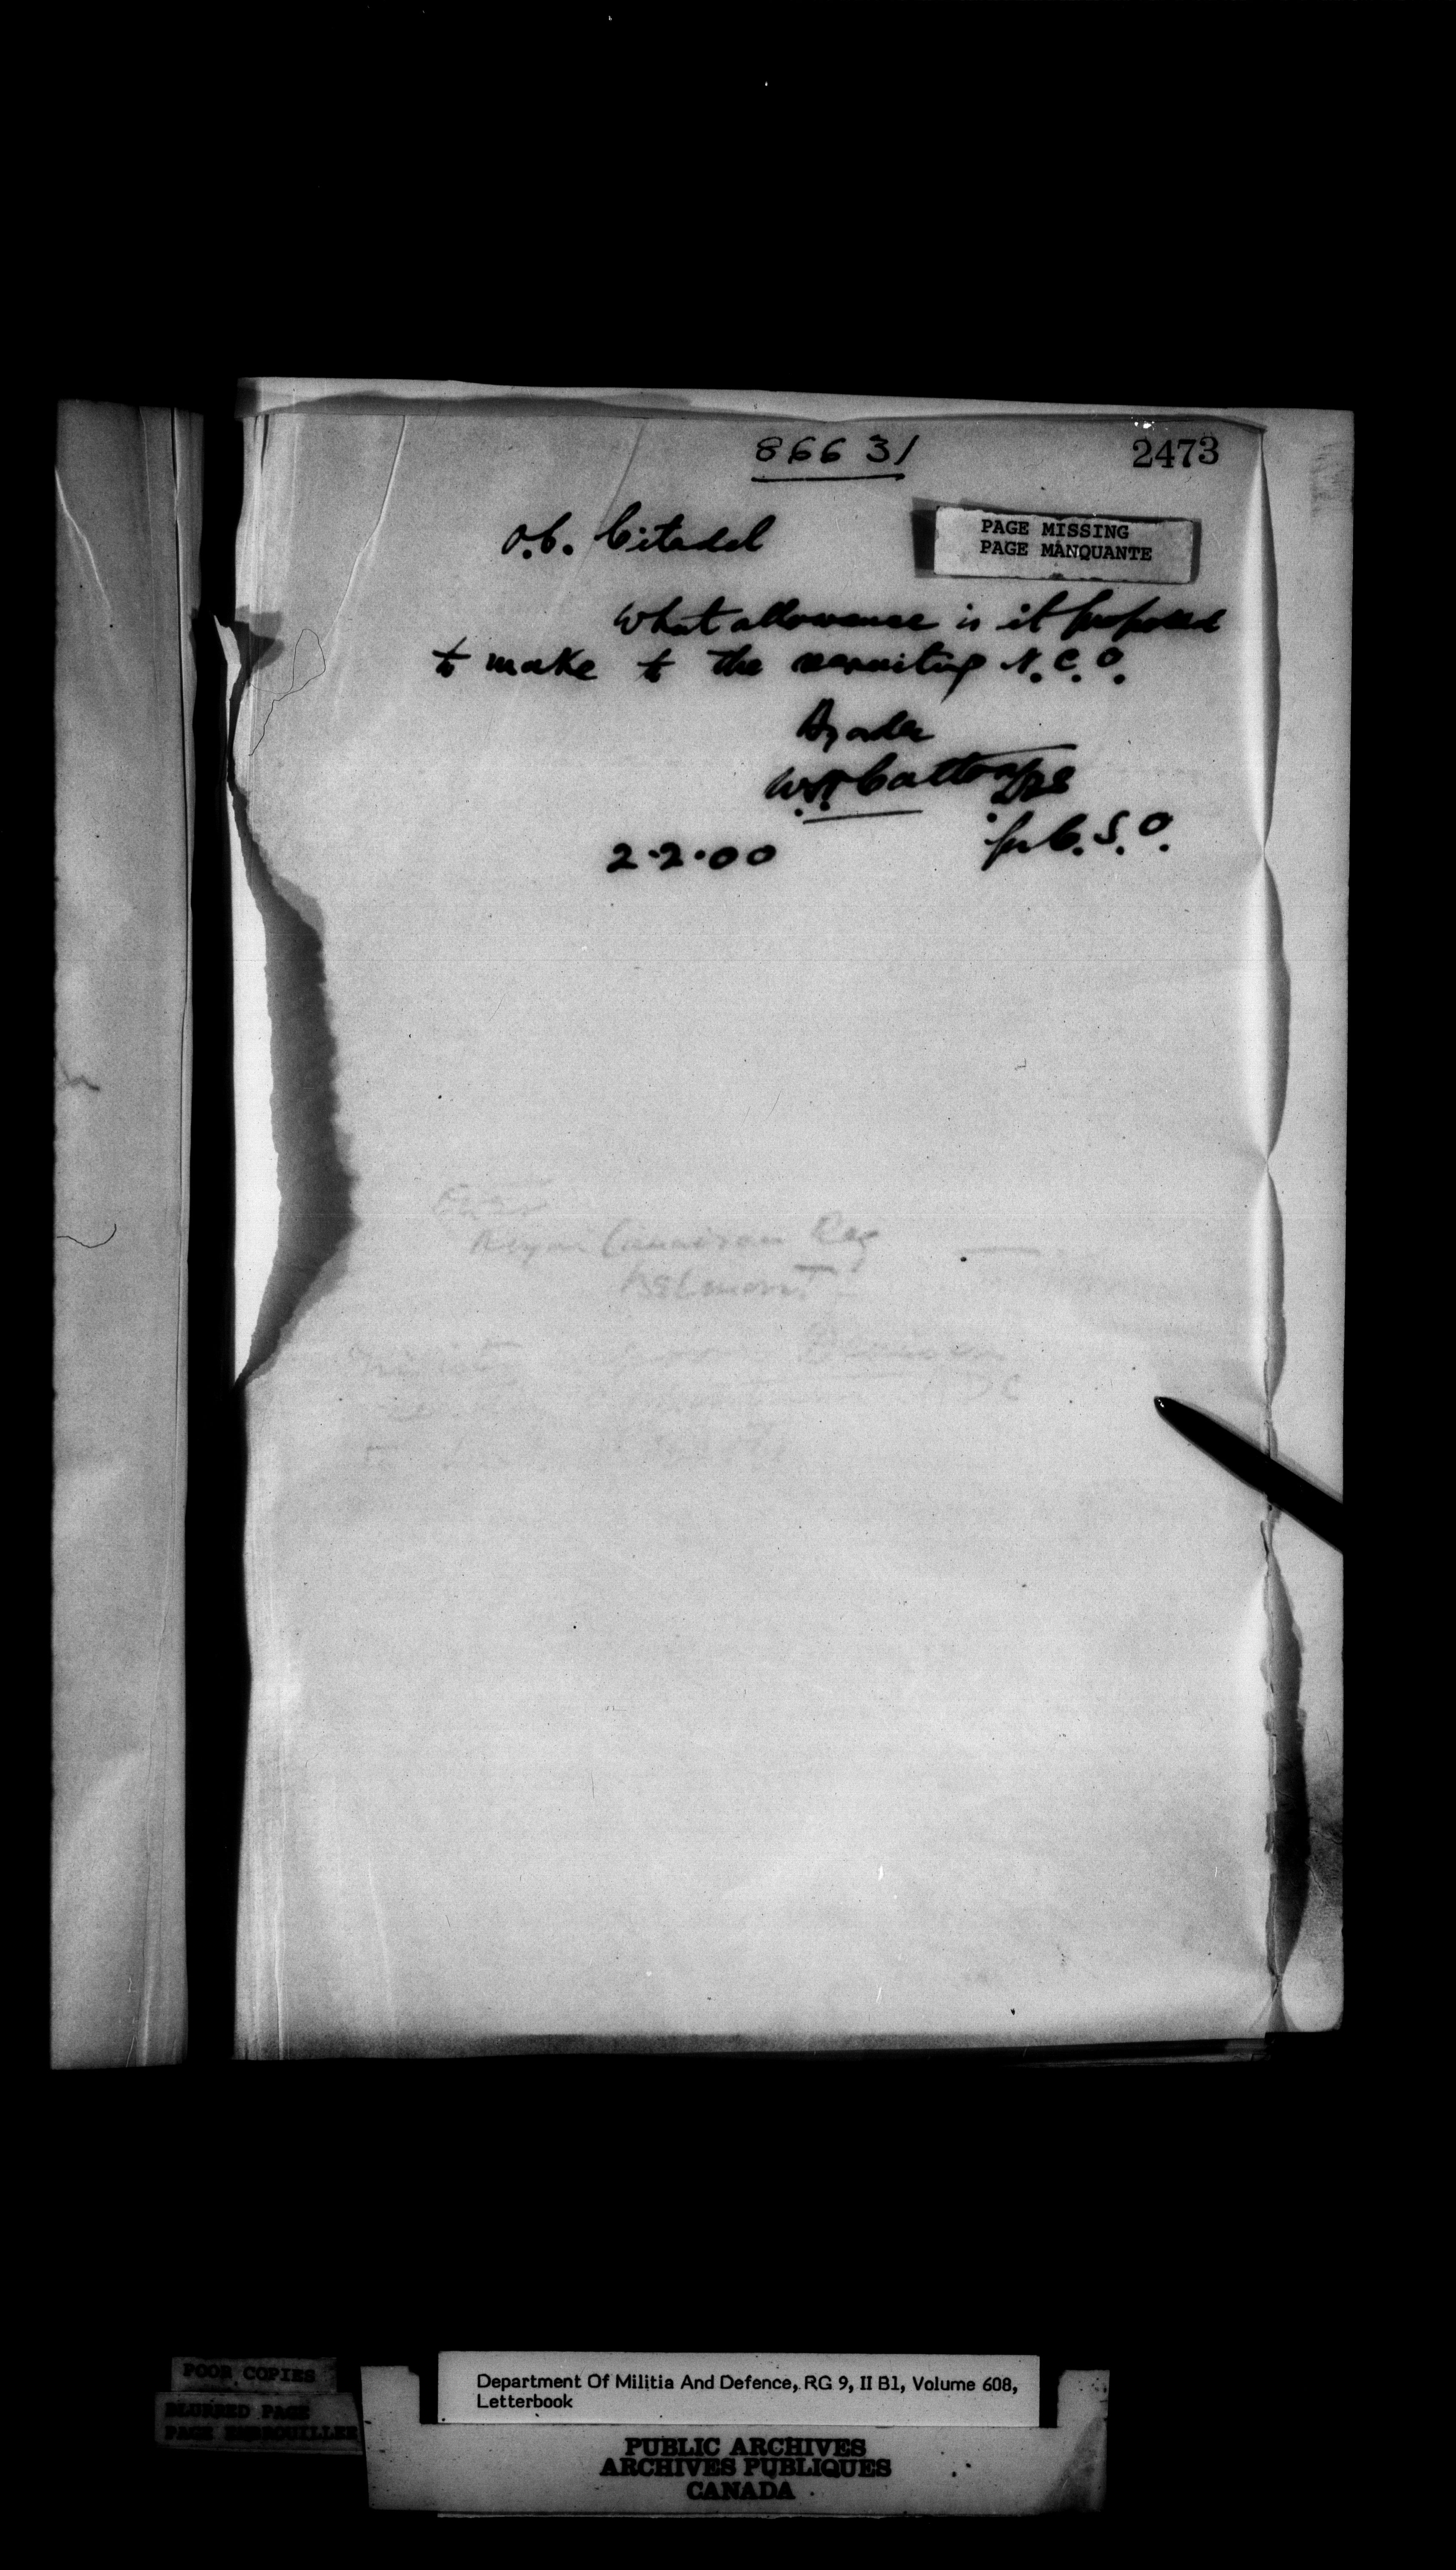 86631
2473
PAGE MISSING
PAGE MANQUANTE
O.C. Citadel
What allowance is it proposed
to make to the recruiting N.C.O.
By order
for C.S.O.
2.2.00
Canadian Reg
Belmont
POOR COPIES
BLURRED PAGE
PAGE EMBROUILLEE
Department Of Militia And Defence, RG 9, II B1, Volume 608,
Letterbook
PUBLIC ARCHIVES
ARCHIVES PUBLIQUES
CANADA